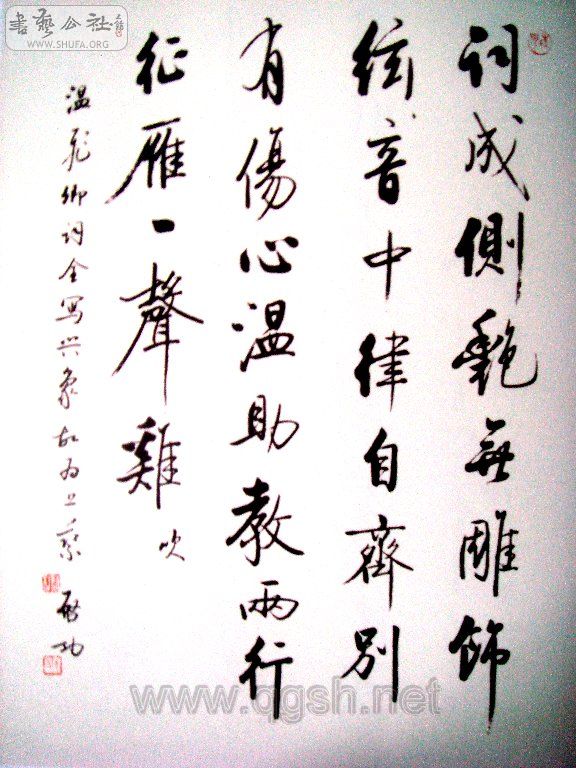 書藝公社
WWW.SHUFA.ORG
詞成側艷無雕飾
絃音中律自齊別
有傷心温助教兩行
征雁一聲雞 吹
温飛卿詞全寫興象故为上乘 啟功
www.qgsh.net